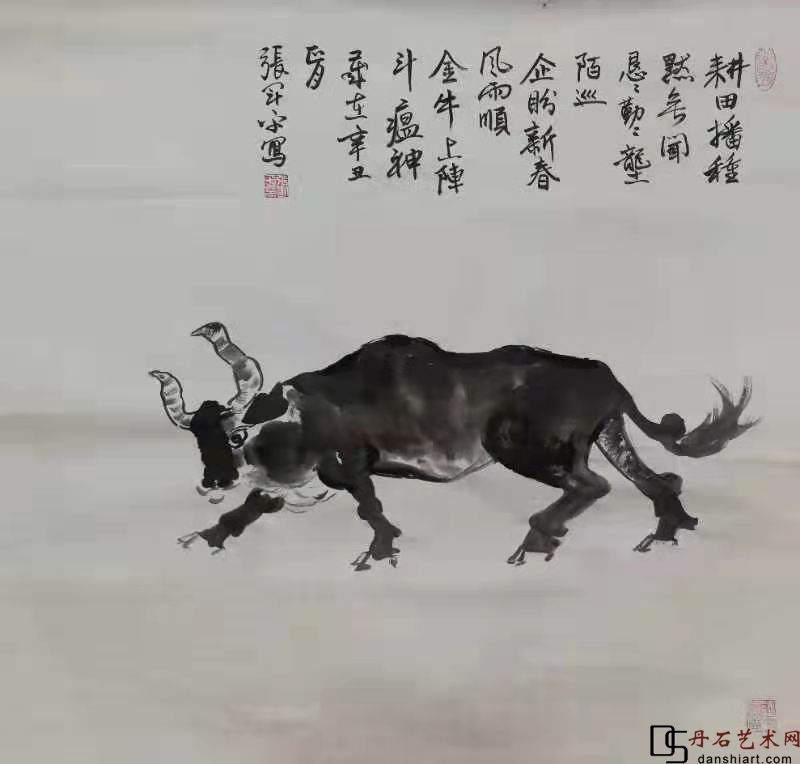 耕田播種
默無聞
恳〻勤〻壟
陌巡
企盼新春
风雨順
金牛上陣
斗瘟神
歲在辛丑
正月
張寫
DS 丹石艺术网
danshiart.com